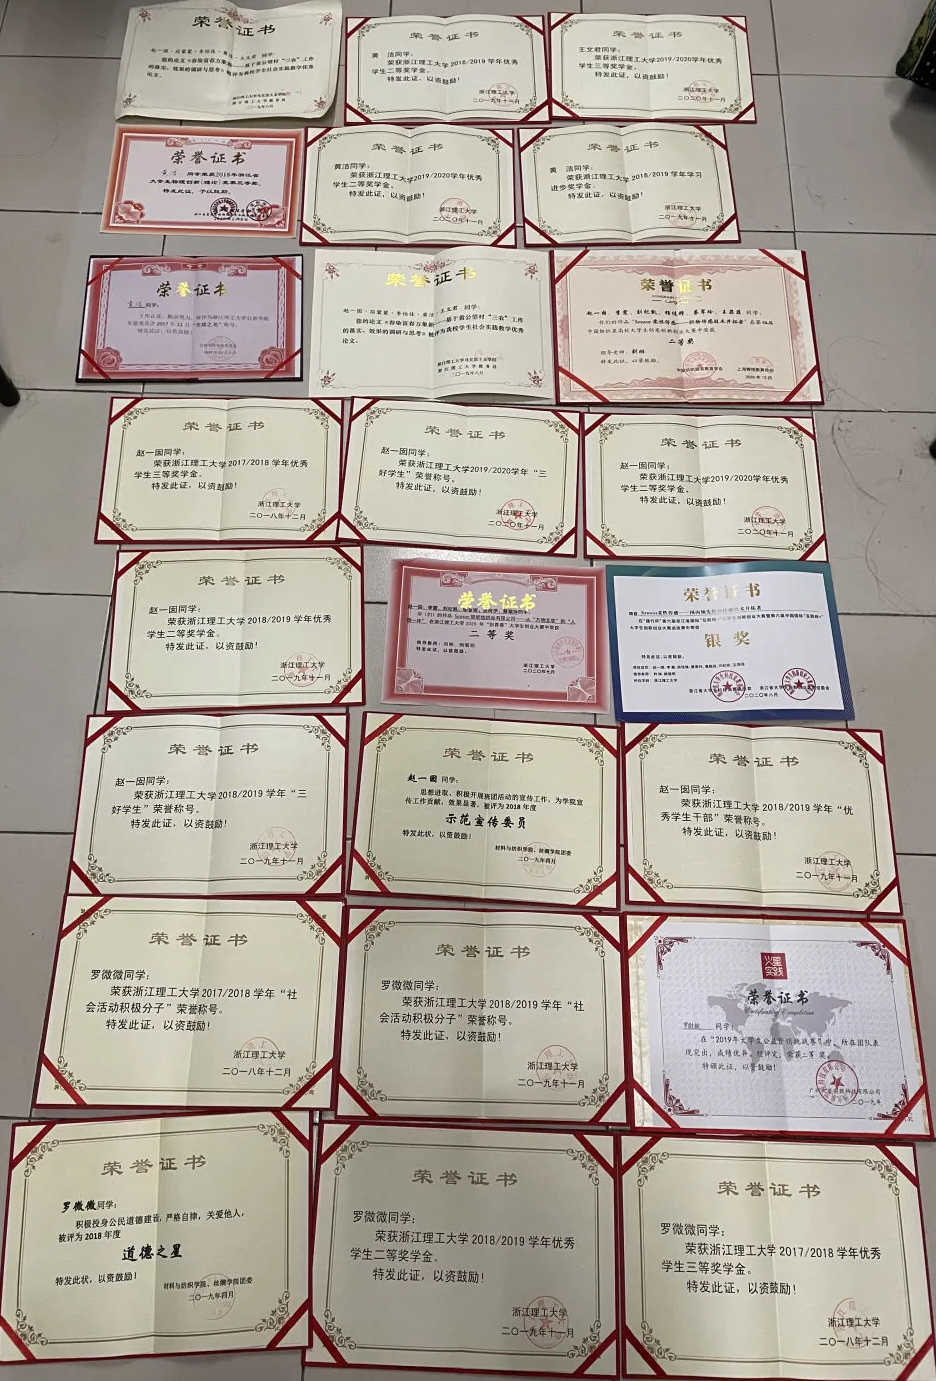 荣誉证书
赵一囡
同学:
您的论文《春染富春万象新
基于黄公望村“三农”工作
的落实、效果的调研与思考》被评为我校学生社会实践教学优秀
论文。
浙江理工大学教务处
二〇一九年六月
荣誉证书
黄 洁同学:
荣获浙江理工大学2018/2019学年优秀
学生二等奖学金。
特发此证,以资鼓励!
浙江理工大学
二〇一九年十一月
荣誉证书
王文君同学:
荣获浙江理工大学2019/2020学年优秀
学生三等奖学金。
特发此证,以资鼓励!
浙江理工大学
二〇二〇年十一月
荣誉证书
同学荣获2018年浙江省
大学生物理创新(理论)竞赛三等奖。
特发此证,予以鼓励。
荣誉证书
黄洁同学:
荣获浙江理工大学2019/2020学年优秀
学生二等奖学金。
特发此证,以资鼓励!
浙江理工大学
二〇二〇年十一月
荣誉证书
黄 洁同学:
荣获浙江理工大学2018/2019学年学习
进步奖学金。
特发此证,以资鼓励!
浙江理工大学
二〇一九年十一月
荣誉证书
同学:
荣誉证书
王文君 同学:
您的论文《春染富春万象新
基于黄公望村“三农”工作
的落实、效果的调研与思考》被评为我校学生社会实践教学优秀
论文。
浙江理工大学马克思主义学院
浙江理工大学教务处
二〇一九年六月
荣誉证书
二等奖
指导老师:
特发此证,以资鼓励。
荣誉证书
赵一囡同学:
荣获浙江理工大学2017/2018 学年优秀
学生三等奖学金。
特发此证,以资鼓励!
浙江理工大学
二〇一八年十二月
荣誉证书
赵一囡同学:
荣获浙江理工大学2019/2020学年“三
好学生”荣誉称号。
特发此证,以资鼓励!
浙江理工大学
二〇二〇年十一月
荣誉证书
赵一囡同学:
荣获浙江理工大学2019/2020学年优秀
学生二等奖学金。
特发此证,以资鼓励!
浙江理工大学
二〇二〇年十一月
荣誉证书
赵一囡同学:
荣获浙江理工大学2018/2019 学年优秀
学生二等奖学金。
特发此证,以资鼓励!
浙江理工大学
二〇一九年十一月
荣誉证书
二等奖
特发此证,以资鼓励。
浙江理工大学
二〇二〇年七月
荣誉证书
银奖
特发此证,以资鼓励。
二〇二〇年八月
荣誉证书
赵一囡同学:
荣获浙江理工大学2018/2019 学年“三
好学生”荣誉称号。
特发此证,以资鼓励!
浙江理工大学
二〇一九年十一月
荣誉证书
赵一囡 同学:
思想进取、积极开展班团活动的宣传工作,为学院宣
传工作贡献,效果显著,被评为 2018 年度
示范宣传委员
特发此状,以资鼓励!
材料与纺织学院、丝绸学院团委
二〇一九年四月
荣誉证书
赵一囡同学:
荣获浙江理工大学2018/2019 学年“优
秀学生干部”荣誉称号。
特发此证,以资鼓励!
浙江理工大学
二〇一九年十一月
荣誉证书
罗微微同学:
荣获浙江理工大学2017/2018 学年“社
会活动积极分子”荣誉称号。
特发此证,以资鼓励!
浙江理工大学
二〇一八年十二月
荣誉证书
罗微微同学:
荣获浙江理工大学2018/2019 学年“社
会活动积极分子”荣誉称号。
特发此证,以资鼓励!
浙江理工大学
二〇一九年十一月
火星
实践
荣誉证书
Certificate of Completion
同学:
在“2019年大学生公益营销挑战赛”中,所在团队表
现突出,成绩优异。经评定,荣获二等 奖。
特颁此证,以资鼓励!
荣誉证书
罗微微同学:
积极投身公民道德建设,严格自律,关爱他人,
被评为 2018 年度
道德之星
特发此状,以资鼓励!
材料与纺织学院、丝绸学院团委
二〇一九年四月
荣誉证书
罗微微同学:
荣获浙江理工大学2018/2019 学年优秀
学生二等奖学金。
特发此证,以资鼓励!
浙江理工大学
二〇一九年十一月
荣誉证书
罗微微同学:
荣获浙江理工大学2017/2018 学年优秀
学生三等奖学金。
特发此证,以资鼓励!
浙江理工大学
二〇一八年十二月